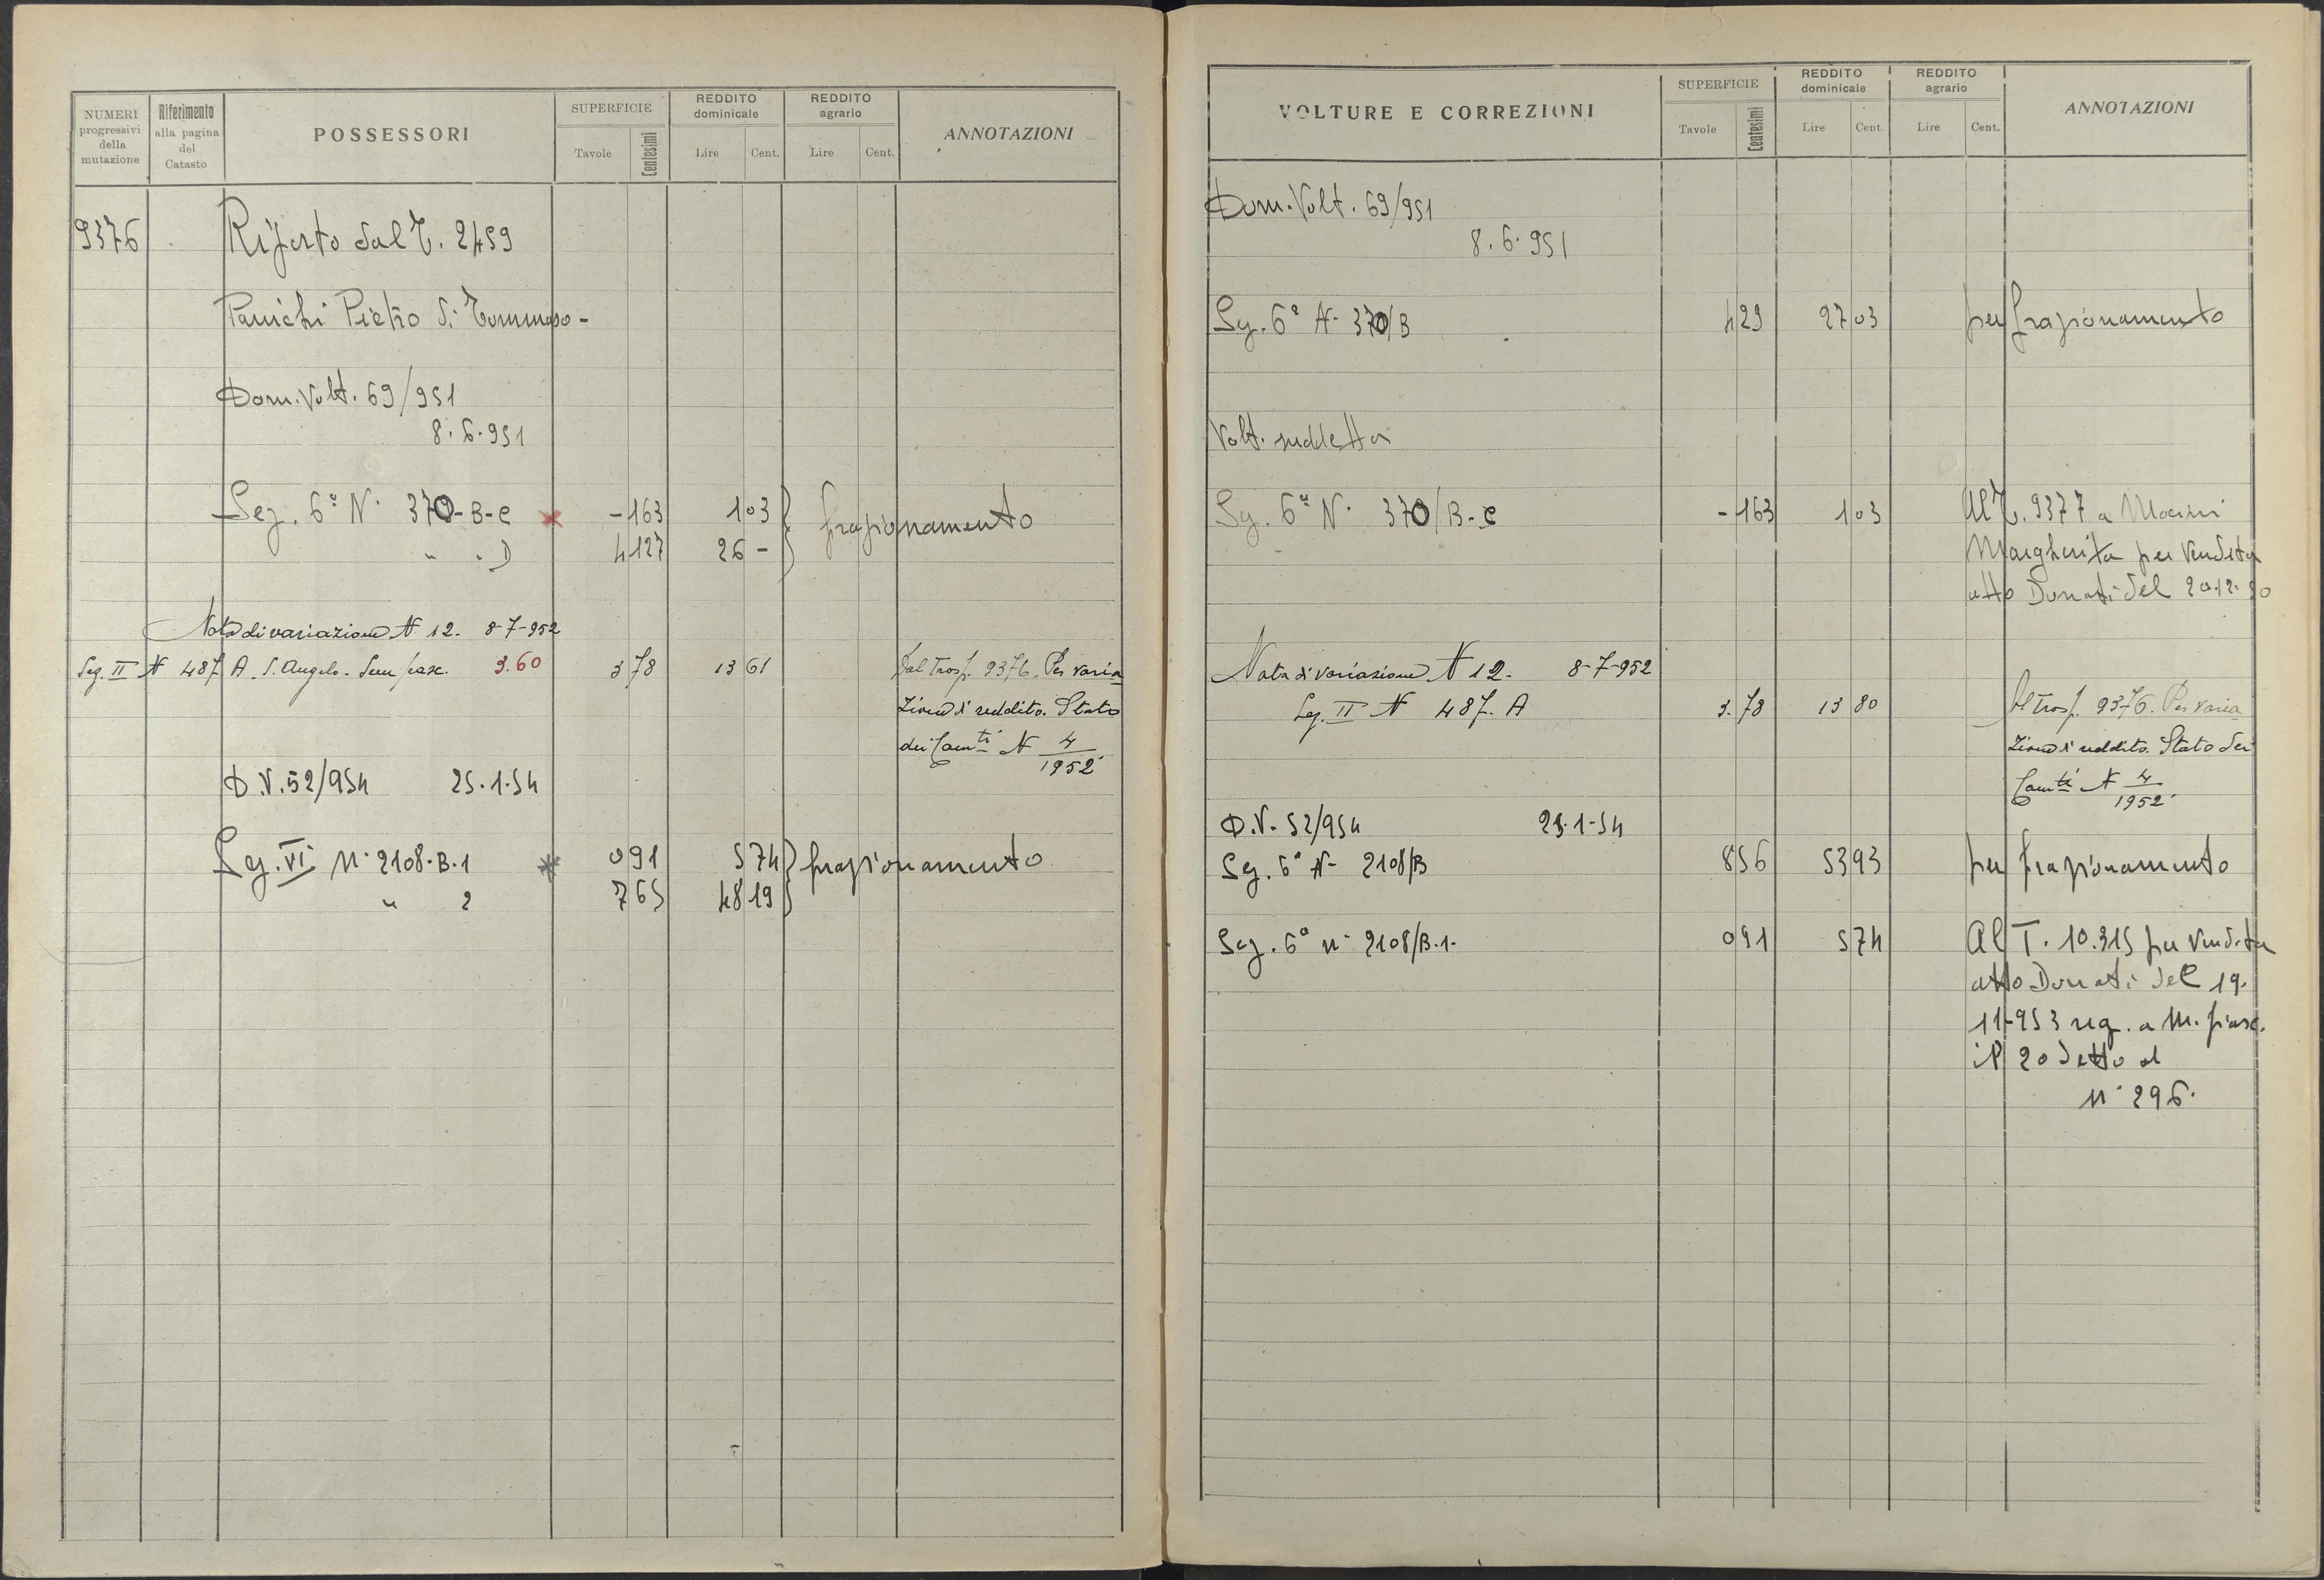 NUMERI progressivi della mutazione | Riferimento alla pagina del Catasto | POSSESSORI | SUPERFICIE Tavole Centesimi | REDDITO dominicale Lire Cent. | REDDITO agrario Lire Cent. | ANNOTAZIONI
9376 Riferto dal T. 2459
Panichi Pietro di Tommaso -
Dom. Volt. 69/951
8.6.951
Sez. 6ª N. 370-B-C - 163 1 03 frazionamento
" " D 4 127 26 -
Nota di variazione N 12. 8-7-952
Sez. II N 487 A S. Angelo. Sem. pasc. 9.60 3 78 13 61 Dal Trasp. 9376. Per varia
zione di reddito. Stato
dei Camti N 4/1952
D.V. 52/954 25.1.54
Sez. VI N. 2108-B-1 0 91 5 74 frazionamento
" 2 7 65 48 19
VOLTURE E CORREZIONI | SUPERFICIE Tavole Centesimi | REDDITO dominicale Lire Cent. | REDDITO agrario Lire Cent. | ANNOTAZIONI
Dom. Volt. 69/951
8.6.951
Sez. 6ª N. 370/B 4 29 27 03 per frazionamento
Volt. suddetta
Sez. 6ª N. 370/B-C - 163 1 03 Al T. 9377 a
Margherita per vendita
atto Donati del 20.12.50
Nota di variazione N 12. 8-7-952
Sez. II N 487. A 3.78 13 80 Al Trasp. 9376. Per varia
zione di reddito. Stato dei
Camti N 4/1952
D.V. 52/954 25-1-54
Sez. 6ª N. 2108/B 8 56 53 93 per frazionamento
Sez. 6ª N. 2108/B.1. 0 91 5 74 Al T. 10.315 per vendita
atto Donati del 19.
11-953 reg. a M. piano.
il 20 detto al
N. 296.